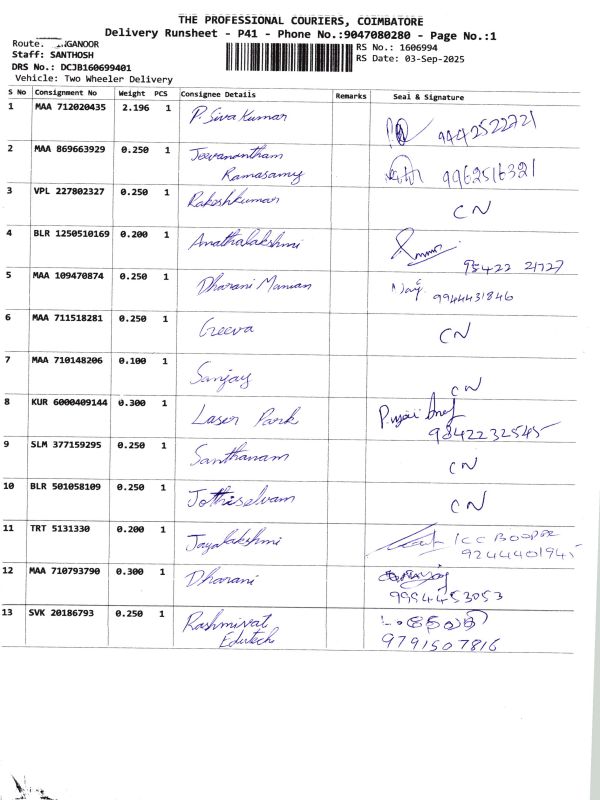 THE PROFESSIONAL COURIERS, COIMBATORE
Delivery Runsheet - P41 - Phone No.:9047080280 - Page No.:1
Route. NGANOOR
Staff: SANTHOSH
DRS No.: DCJB160699401
Vehicle: Two Wheeler Delivery
RS No.: 1606994
RS Date: 03-Sep-2025
S No Consignment No Weight PCS Consignee Details Remarks Seal & Signature
1 MAA 712020435 2.196 1 P. Siva Kumar
9442522721
2 MAA 869663929 0.250 1 Jeevanantham
Ramasamy 9962516321
3 VPL 227802327 0.250 1 Rakeshkumar CN
4 BLR 1250510169 0.200 1 Anathalakshmi
95422 21727
5 MAA 109470874 0.250 1 Dharani Manian
9944431846
6 MAA 711518281 0.250 1 Geeva CN
7 MAA 710148206 0.100 1 Sanjay CN
8 KUR 6000409144 0.300 1 Laser Park
9842232545
9 SLM 377159295 0.250 1 Santhanam CN
10 BLR 501058109 0.250 1 Jothiselvam CN
11 TRT 5131330 0.200 1 Jayalakshmi ICC
9244401945
12 MAA 710793790 0.300 1 Dharani
9994453053
13 SVK 20186793 0.250 1 Rashmivat
Edutech 9791507816